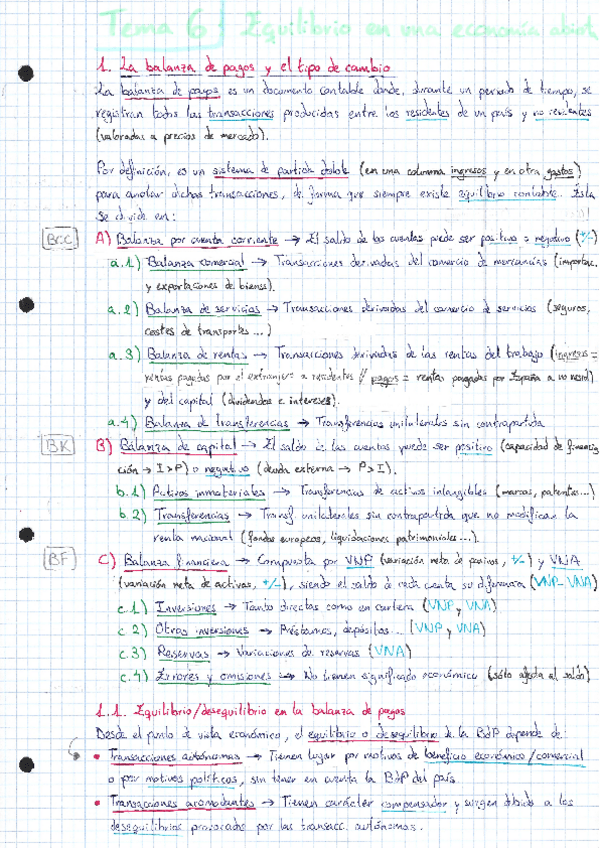 Tema 6 Equilibrio en una economía abiert
1. La balanza de pagos y el tipo de cambio
La balanza de pagos es un documento contable donde, durante un periodo de tiempo, se
registran todas las transacciones producidas entre los residentes de un país y no residentes
(valoradas a precios de mercado).
Por definición, es un sistema de partida doble (en una columna ingresos y en otra gastos)
para anotar dichas transacciones, de forma que siempre existe equilibrio contable. Ésta
se divide en:
BCC A) Balanza por cuenta corriente → El saldo de las cuentas puede ser positivo o negativo (+/-)
a.1) Balanza comercial → Transacciones derivadas del comercio de mercancías (importac.
y exportaciones de bienes).
a.2) Balanza de servicios → Transacciones derivadas del comercio de servicios (seguros,
costes de transportes...)
a.3) Balanza de rentas → Transacciones derivadas de las rentas del trabajo (ingresos =
rentas pagadas por el extranjero a residentes // pagos = rentas pagadas por España a no resid)
y del capital (dividendos e intereses).
a.4) Balanza de transferencias → Transferencias unilaterales sin contrapartida
BK B) Balanza de capital → El saldo de las cuentas puede ser positivo (capacidad de financia
ción → I>P) o negativo (deuda externa → P>I).
b.1) Activos inmateriales → Transferencias de activos intangibles (marcas, patentes...)
b.2) Transferencias → Transf. unilaterales sin contrapartida que no modifican la
renta nacional (fondos europeos, liquidaciones patrimoniales...).
BF C) Balanza financiera → Compuesta por VNP (variación neta de pasivos, +/-) y VNA
(variación neta de activos, +/-), siendo el saldo de cada cuenta su diferencia (VNP-VNA)
c.1) Inversiones → Tanto directas como en cartera (VNP y VNA)
c.2) Otras inversiones → Préstamos, depósitos... (VNP y VNA)
c.3) Reservas → Variaciones de reservas (VNA)
c.4) Errores y omisiones → No tienen significado económico (sólo afecta al saldo)
1.1. Equilibrio/desequilibrio en la balanza de pagos
Desde el punto de vista económico, el equilibrio o desequilibrio de la BdP depende de:
• Transacciones autónomas → Tienen lugar por motivos de beneficio económico/comercial
o por motivos políticos, sin tener en cuenta la BdP del país.
• Transacciones acomodantes → Tienen carácter compensador y surgen debido a los
desequilibrios provocados por las transacc. autónomas.